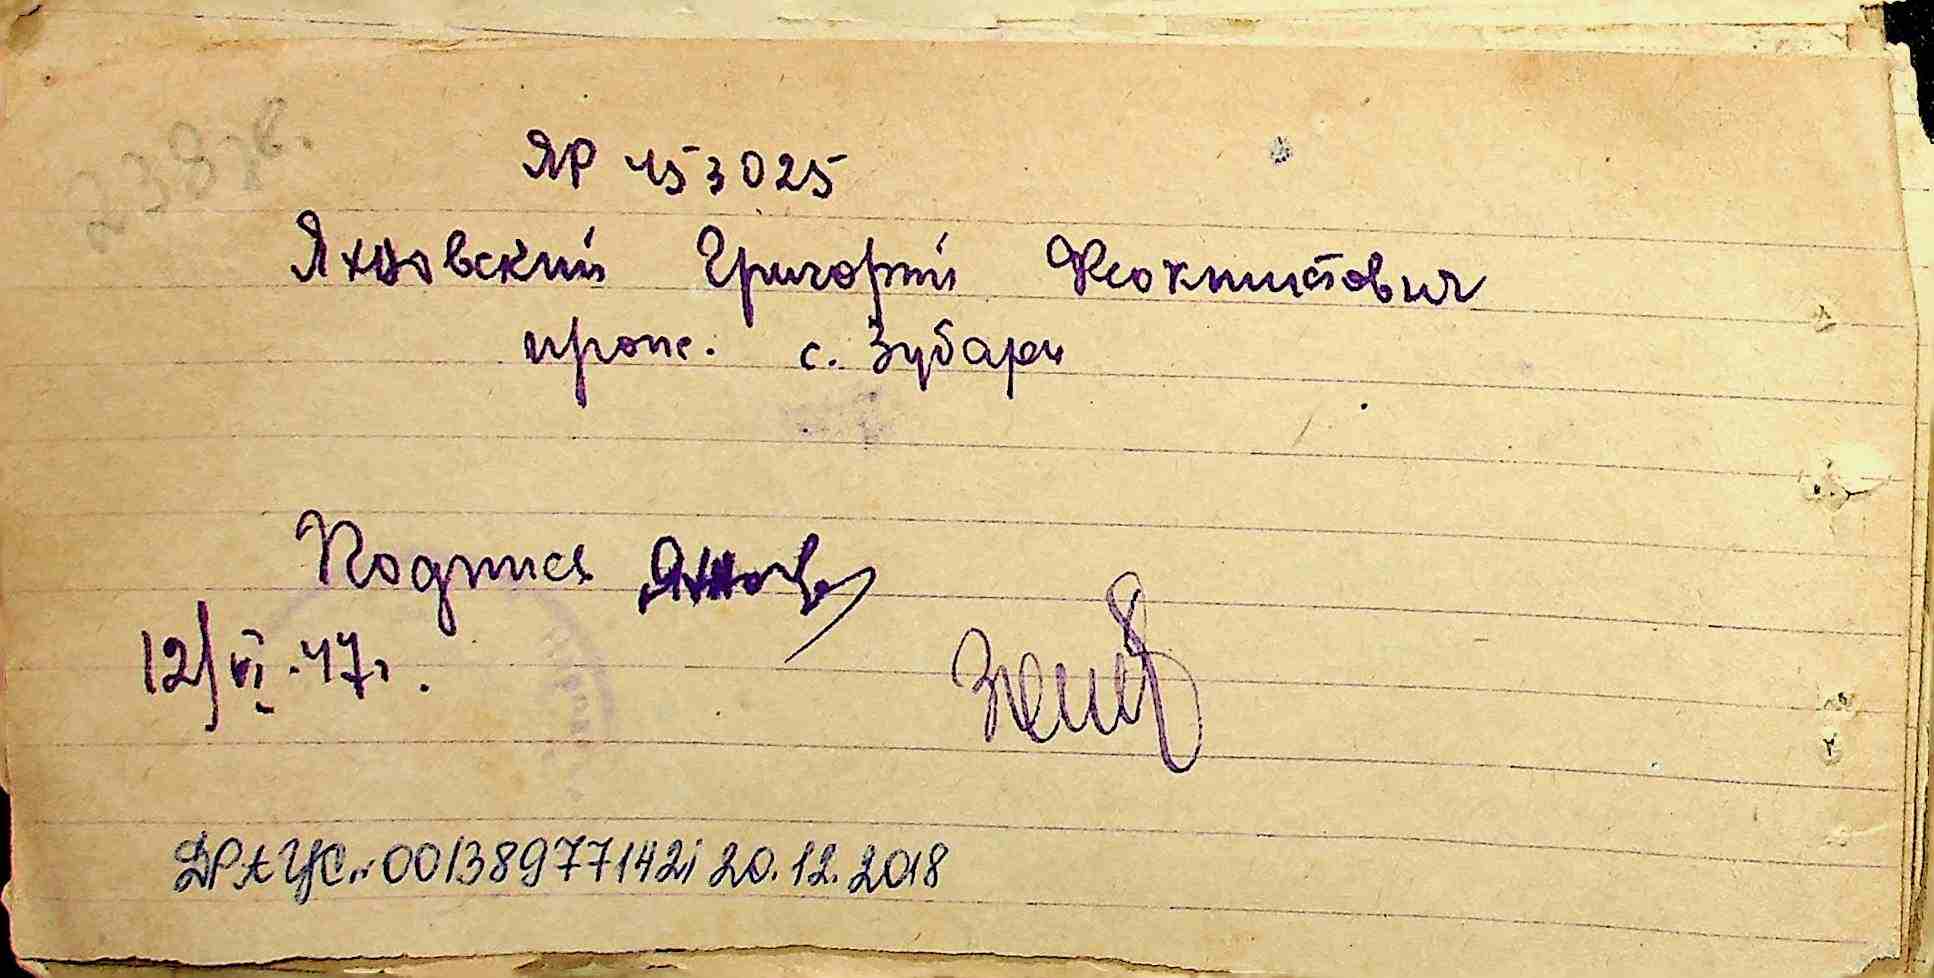 238 зв.
ЯР 453025
Яхновский Григорий Феоктистович
прож. с. Зубари
Подпись Яхнов
12/VI-47г.
ДРАЦС. 00138977142 20.12.2018